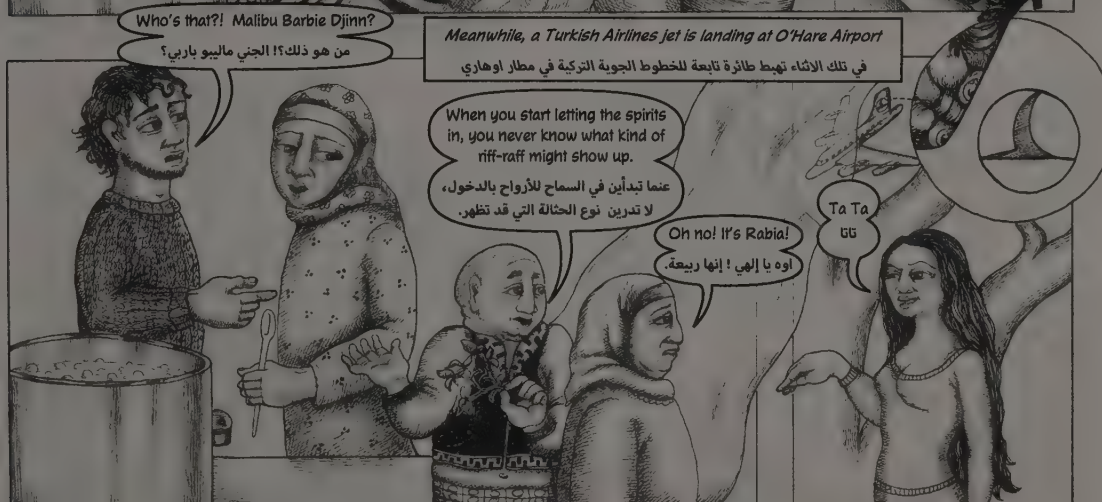 Who's that?! Malibu Barbie Djinn?
من هو ذلك؟! الجني ماليبو باربي؟
Meanwhile, a Turkish Airlines jet is landing at O'Hare Airport
في تلك الاثناء تهبط طائرة تابعة للخطوط الجوية التركية في مطار اوهاري
When you start letting the spirits
in, you never know what kind of
riff-raff might show up.
عنما تبدأين في السماح للأرواح بالدخول،
لا تدرين نوع الحثالة التي قد تظهر.
Oh no! It's Rabia!
اوه يا إلهي ! إنها ربيعة.
Ta Ta
تاتا